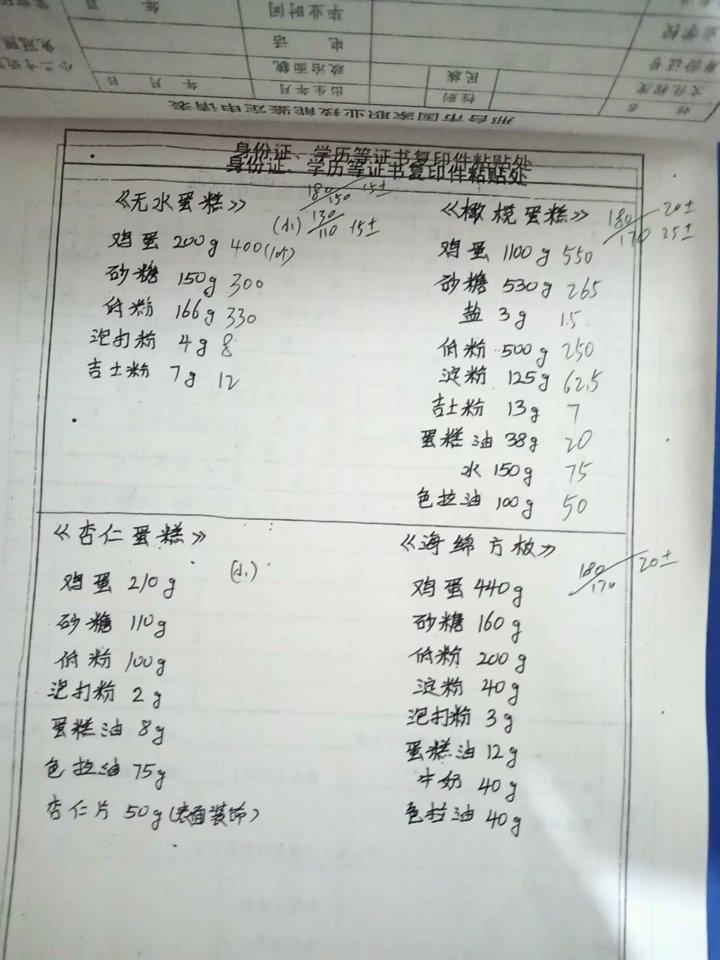 邢台市国家职业技能鉴定申请表
姓 名
性别
出生年月
年 月 日
文化程度
民族
政治面貌
身份证号
电 话
毕业时间
身份证、学历等证书复印件粘贴处
身份证、学历等证书复印件粘贴处
《无水蛋糕》
180/150 15±
(小) 130/110 15±
鸡蛋 200g 400(10个)
砂糖 150g 300
低粉 166g 330
泡打粉 4g 8
吉士粉 7g 12
《橄榄蛋糕》
180/170 20± 25±
鸡蛋 1100g 550
砂糖 530g 265
盐 3g 1.5
低粉 500g 250
淀粉 125g 62.5
吉士粉 13g 7
蛋糕油 38g 20
水 150g 75
色拉油 100g 50
《杏仁蛋糕》
(小)
鸡蛋 210g
砂糖 110g
低粉 100g
泡打粉 2g
蛋糕油 8g
色拉油 75g
杏仁片 50g(表面装饰)
《海绵方板》
180/170 20±
鸡蛋 440g
砂糖 160g
低粉 200g
淀粉 40g
泡打粉 3g
蛋糕油 12g
牛奶 40g
色拉油 40g